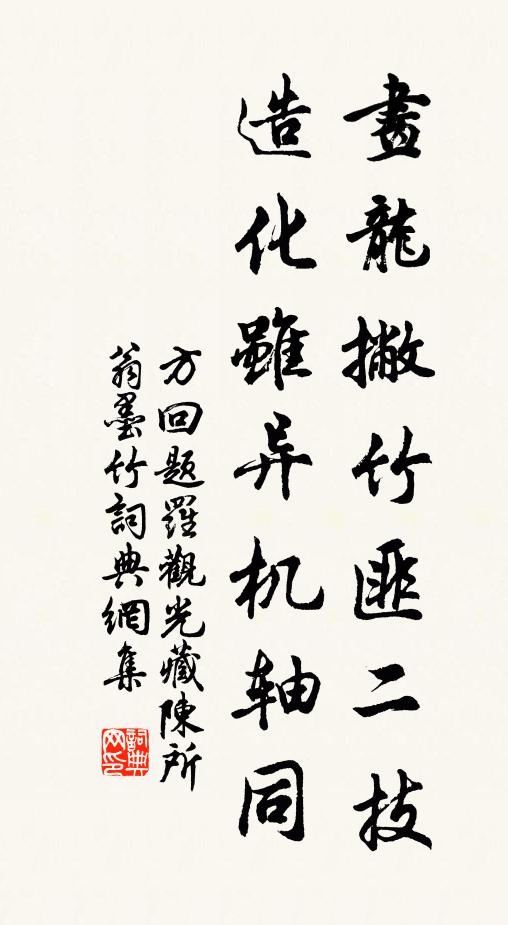 畫龍撇竹匪二技
造化雖异机軸同
方回題羅觀光藏陳所
翁墨竹詞典網集
詞典网印